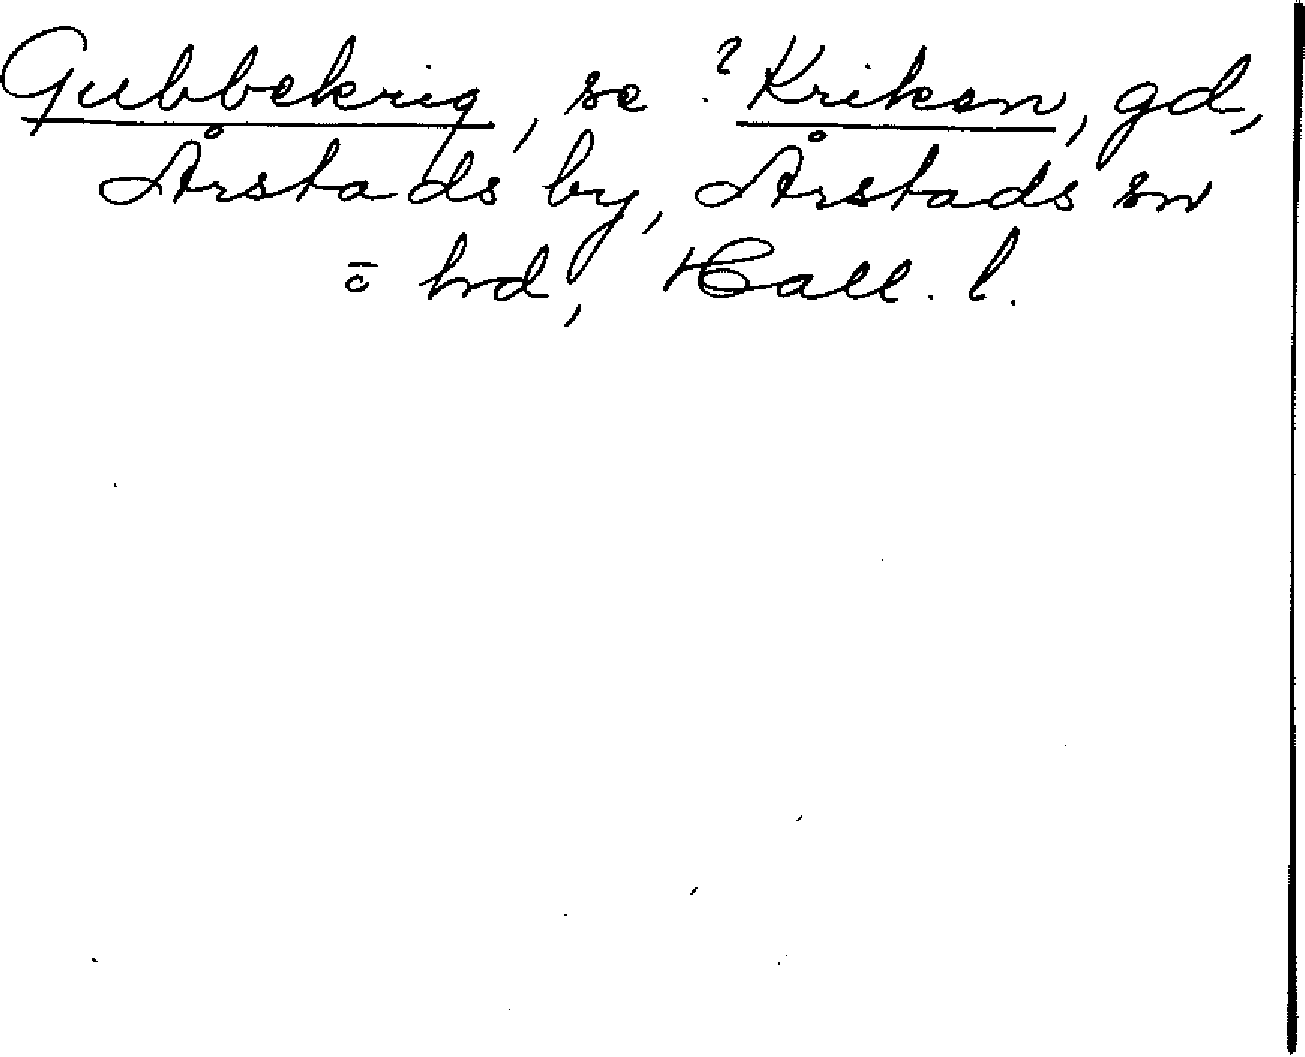 Gubbekrig, se ?Kriken, gd,
Årstads by, Årstads sn
o hd, Hall. l.